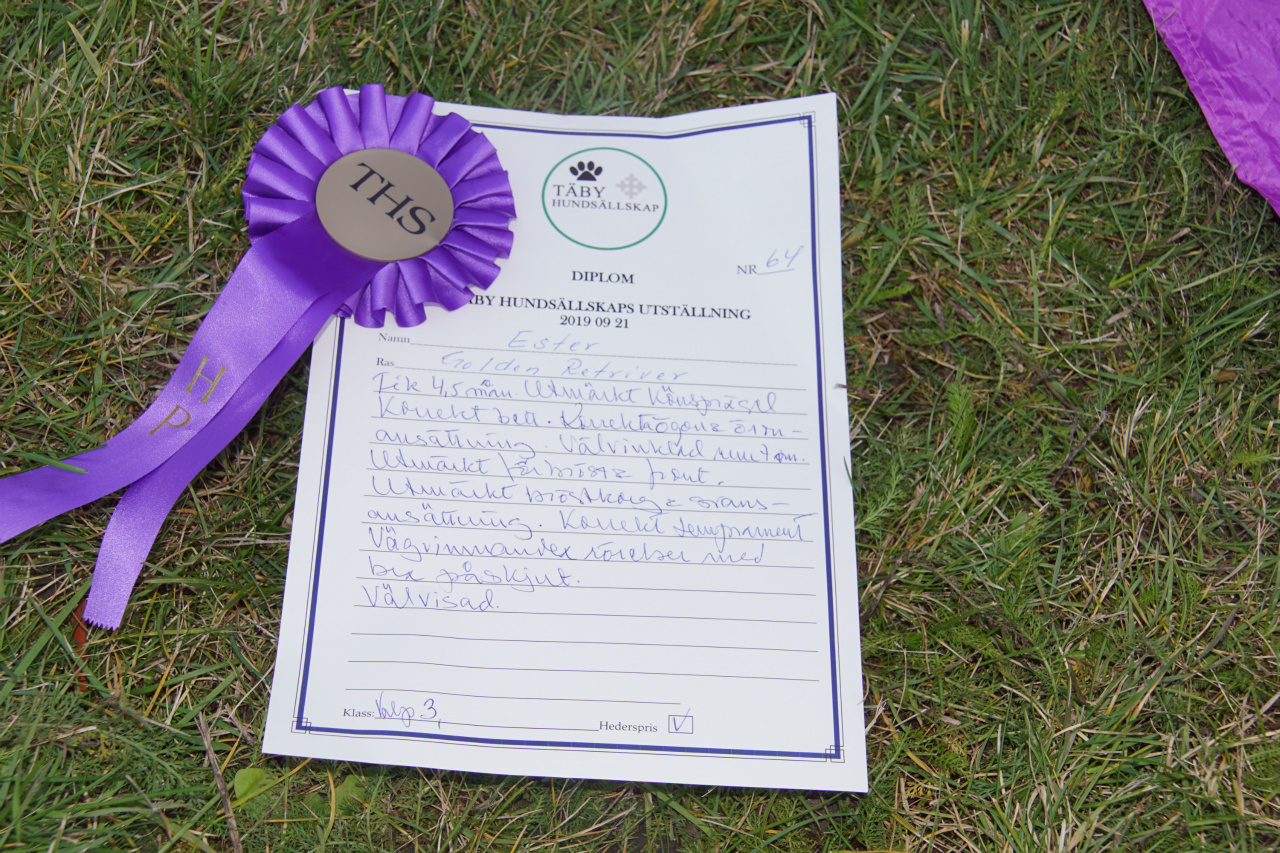 THS
H
P
TÄBY
HUNDSÄLLSKAP
NR 64
DIPLOM
ÄBY HUNDSÄLLSKAPS UTSTÄLLNING
2019 09 21
Namn Ester
Ras Golden Retriver
Tik 4,5 mån. Utmärkt Könsprägel
Korrekt bett. Korrekt ögon & öron-
ansättning. Välvinklad
Utmärkt front.
Utmärkt bröstkorg & svans-
ansättning. Korrekt temprament
Vägvinnandex rörelser med
bra påskjut.
Välvisad.
Klass: 3, Hederspris